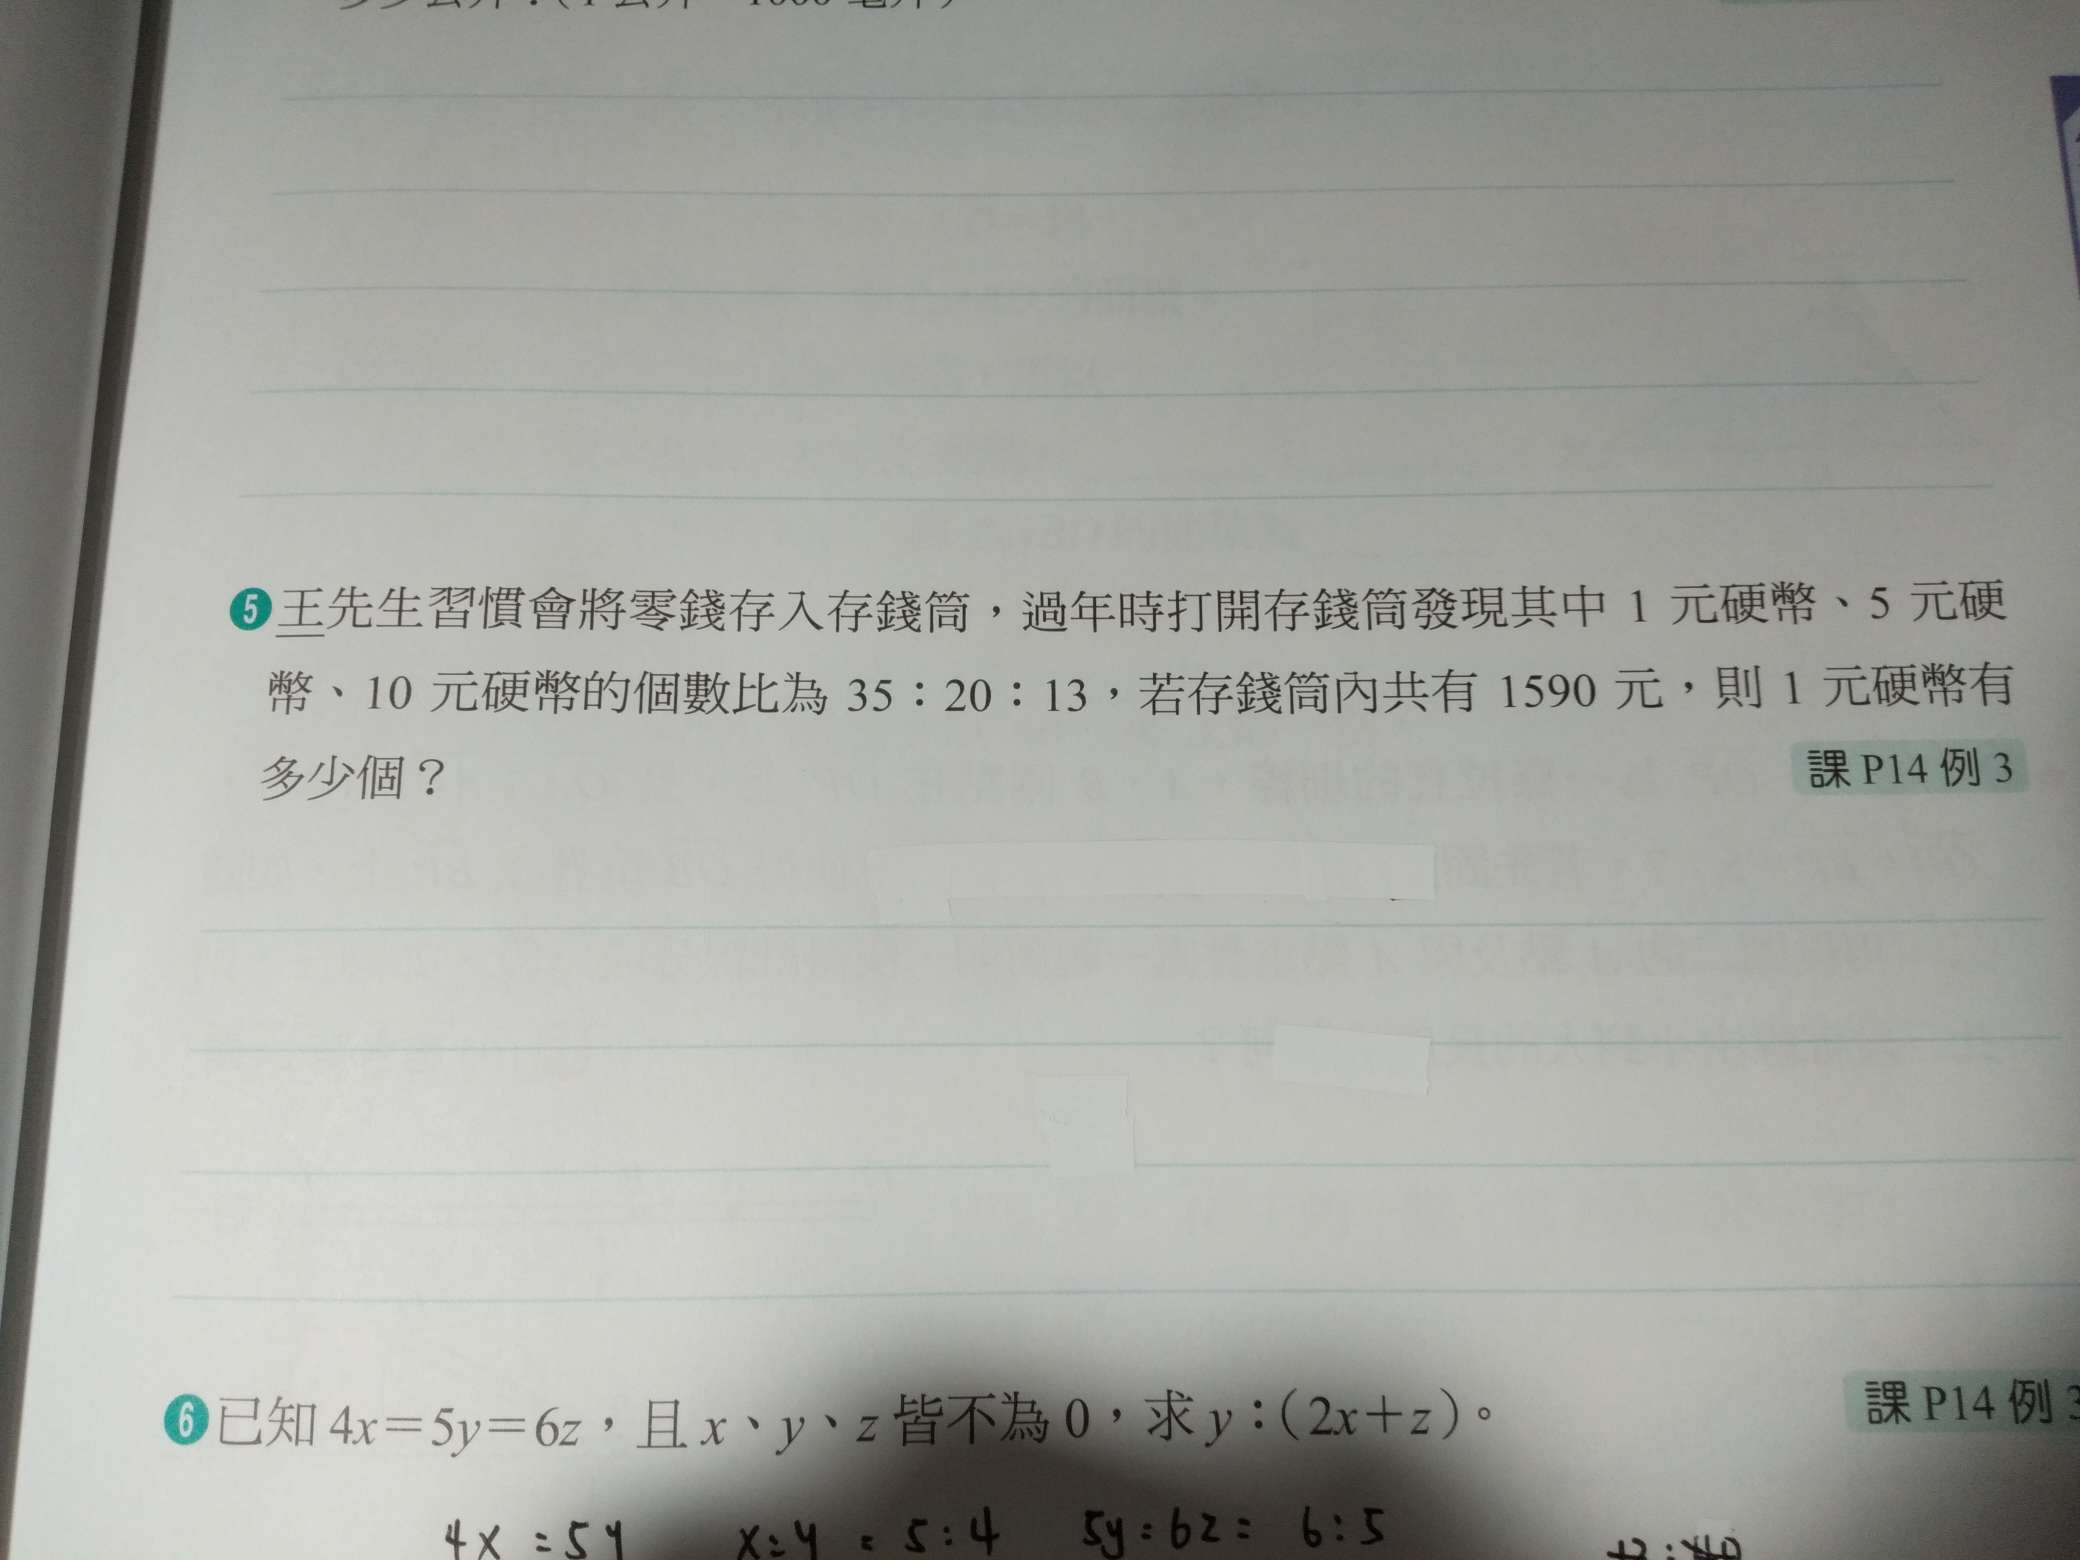 ❺王先生習慣會將零錢存入存錢筒，過年時打開存錢筒發現其中 1 元硬幣、5 元硬
幣、10 元硬幣的個數比為 35：20：13，若存錢筒內共有 1590 元，則 1 元硬幣有
多少個？
課 P14 例 3
❻已知 4x＝5y＝6z，且 x、y、z 皆不為 0，求 y：(2x＋z)。
課 P14 例 3
4x = 5y x:y = 5:4 5y=6z= 6:5